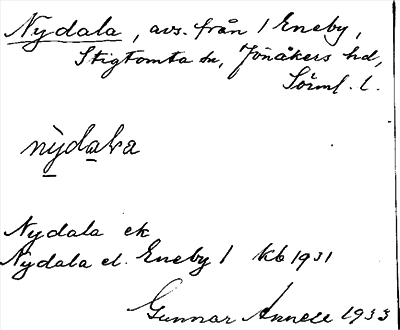 Nydala, avs. från 1 Eneby,
Stigtomta sn, Jönåkers hd,
Sörml. l.
nỳdala
Nydala ek
Nydala el. Eneby 1 kb 1931
Gunnar Annell 1933